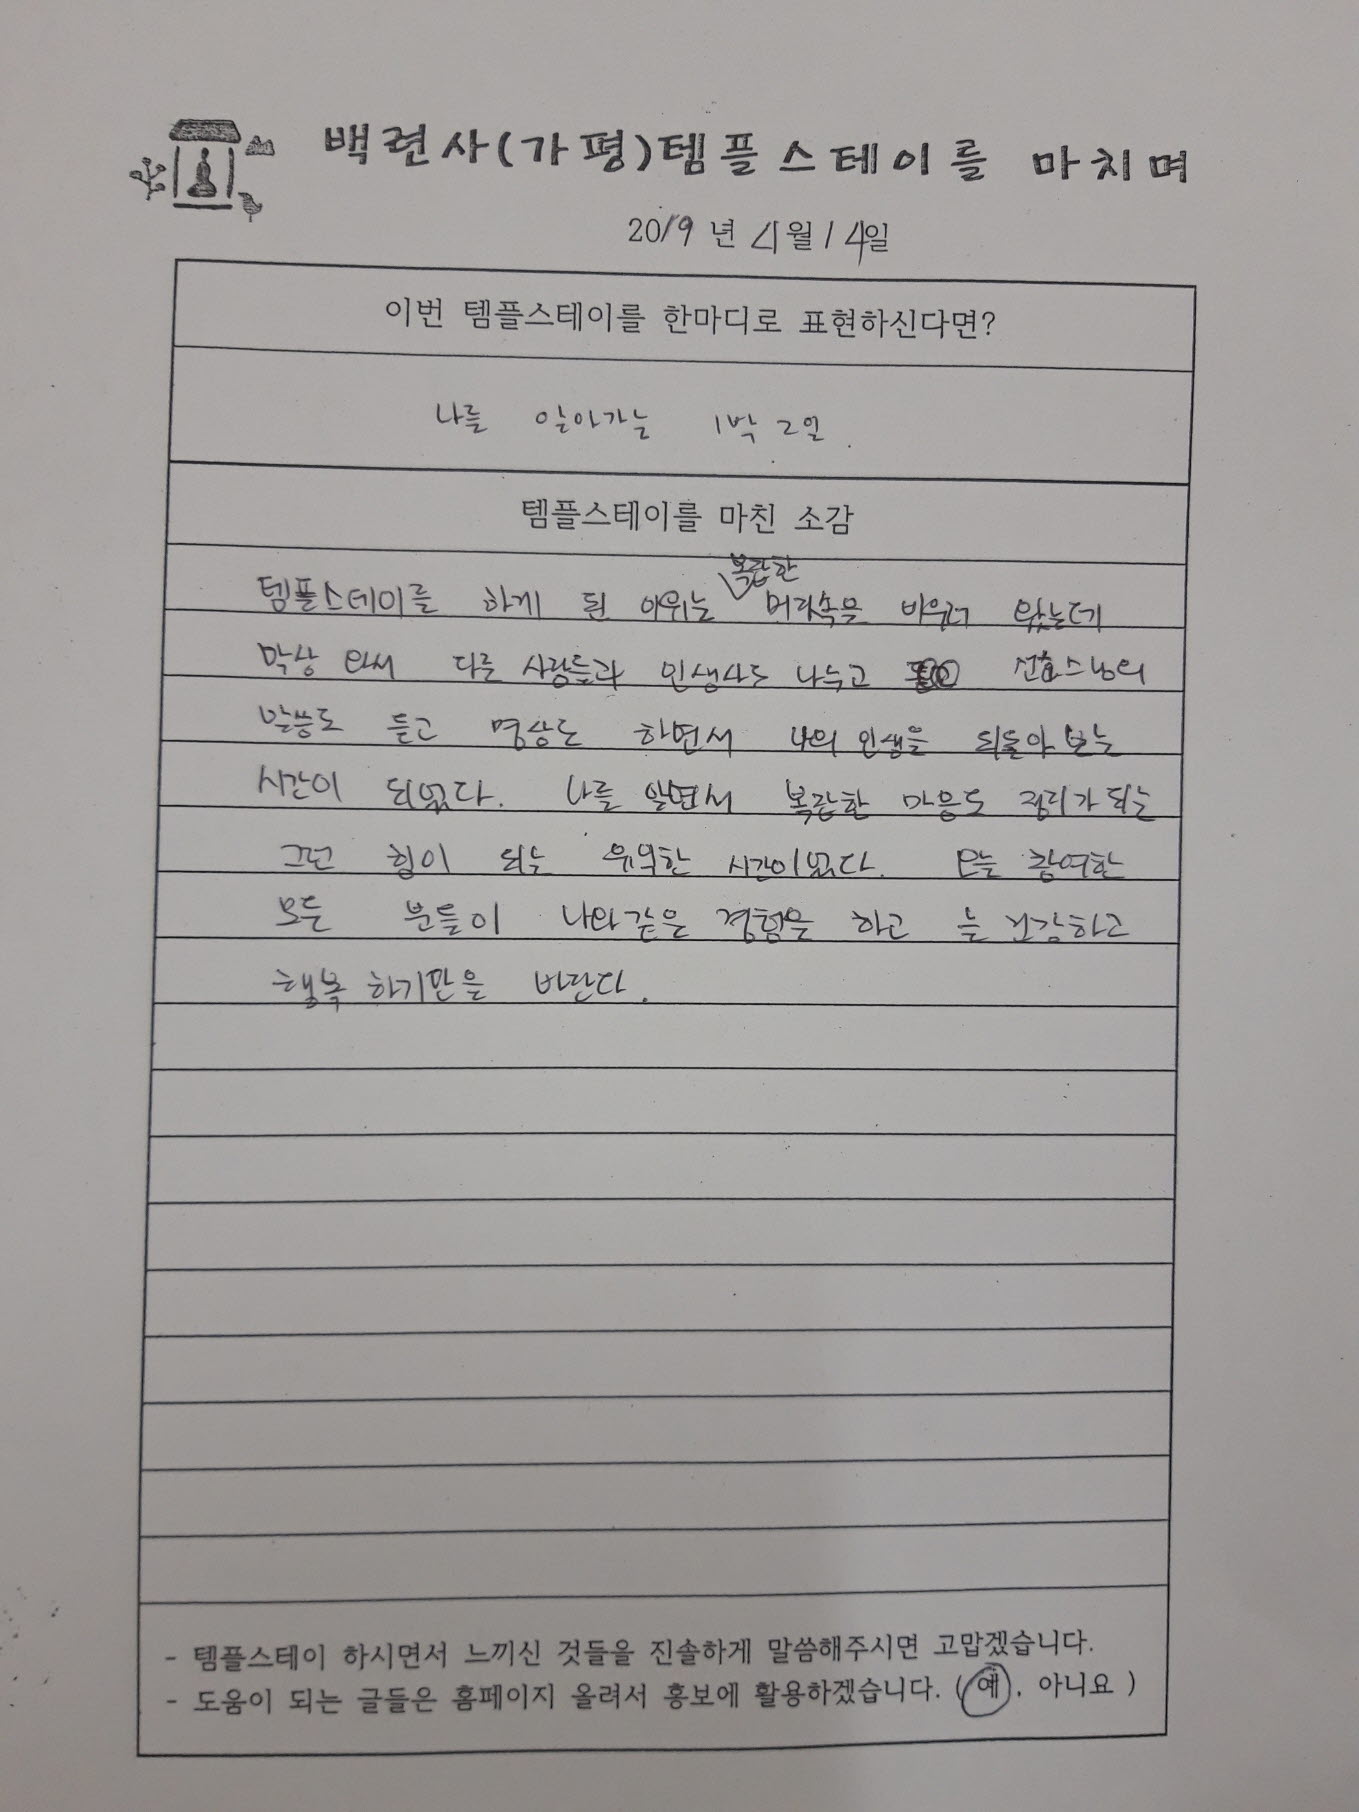 백련사(가평)템플스테이를 마치며
2019 년 4월 14일
이번 템플스테이를 한마디로 표현하신다면?
나를 알아가는 1박 2일.
템플스테이를 마친 소감
복잡한
템플스테이를 하게 된 이유는 머리속을 비우러 왔는데
막상 와서 다른 사람들과 인생사도 나누고 선효스님의
말씀도 듣고 명상도 하면서 나의 인생을 되돌아 보는
시간이 되었다. 나를 알면서 복잡한 마음도 정리가 되는
그런 힘이 되는 유익한 시간이었다. 오늘 참여한
모든 분들이 나와 같은 경험을 하고 늘 건강하고
행복 하기만을 바란다.
- 템플스테이 하시면서 느끼신 것들을 진솔하게 말씀해주시면 고맙겠습니다.
- 도움이 되는 글들은 홈페이지 올려서 홍보에 활용하겠습니다. (예, 아니요 )